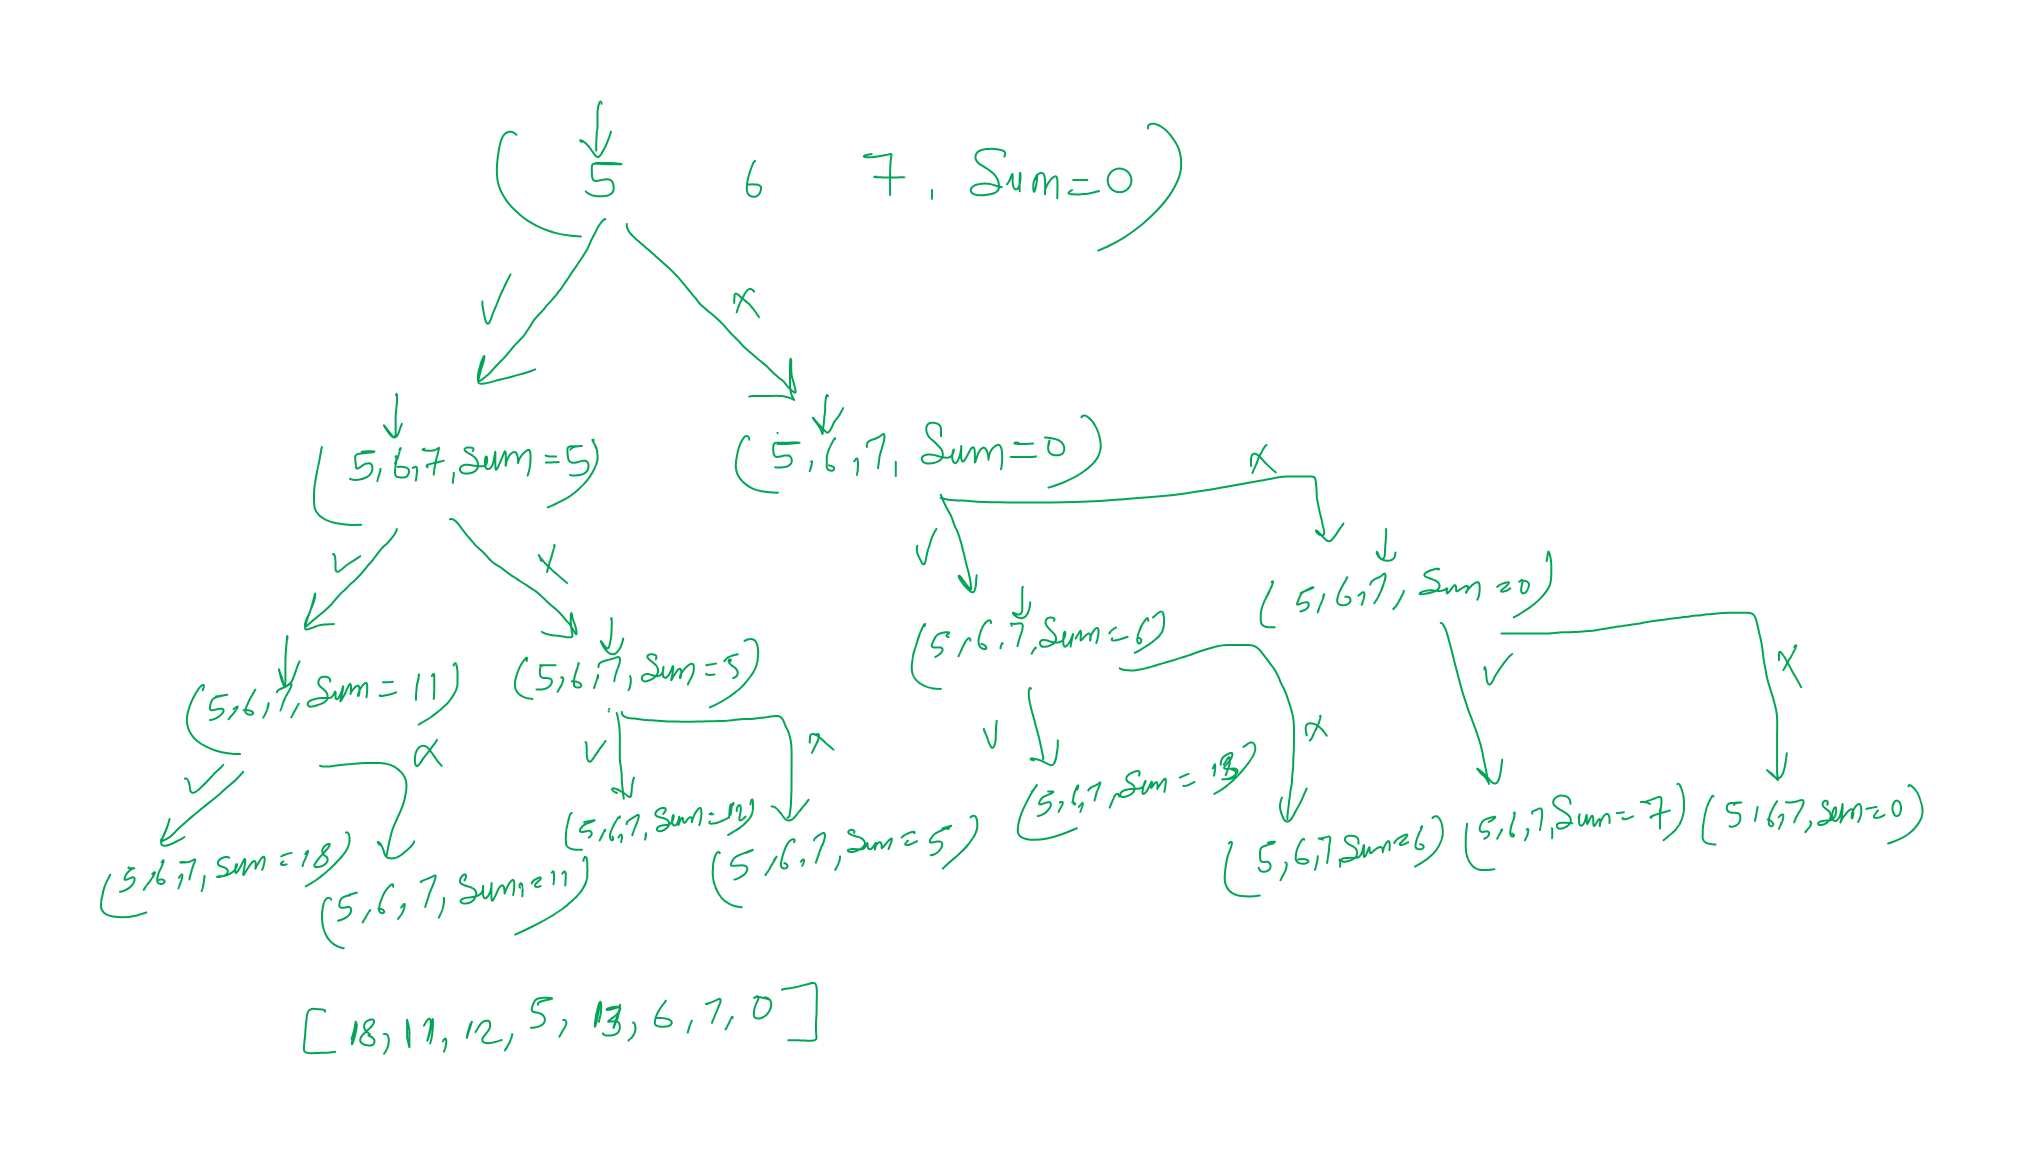 ( 5 6 7, Sum=0 )
✓ x
(5,6,7,Sum=5) (5,6,7, Sum=0)
x
✓ x ✓
(5,6,7, Sum=0)
(5,6,7,Sum=6)
(5,6,7,Sum=11) (5,6,7, Sum=5)
✓ x
✓ x ✓ x ✓ x
(5,6,7, Sum=13)
(5,6,7, Sum=18) (5,6,7, Sum=12) (5,6,7,Sum=6) (5,6,7,Sum=7) (5,6,7,Sum=0)
(5,6,7, Sum=11) (5,6,7, Sum=5)
[18,11,12,5,13,6,7,0]